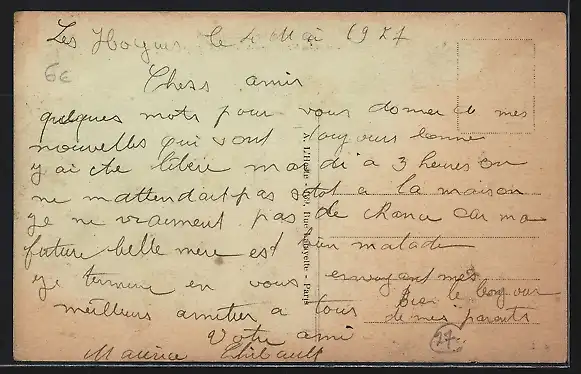 Les Hogues le 4 Mai 1927
6€
Chess amis
quelques mots pour vous donner de mes
nouvelles qui sont toujours bonne
y ai ete libere mardi a 3 heures on
ne m attendait pas sitot a la maison
ye ne vraiment pas de chance car ma
future belle mere est bien malade
ye termine en vous envoyant mes
meilleurs amities a tous
Bien le bonjour
de mes parents
Votre ami
Maurice Thibault
27
A. L'Hoste - Rue Lafayette - Paris